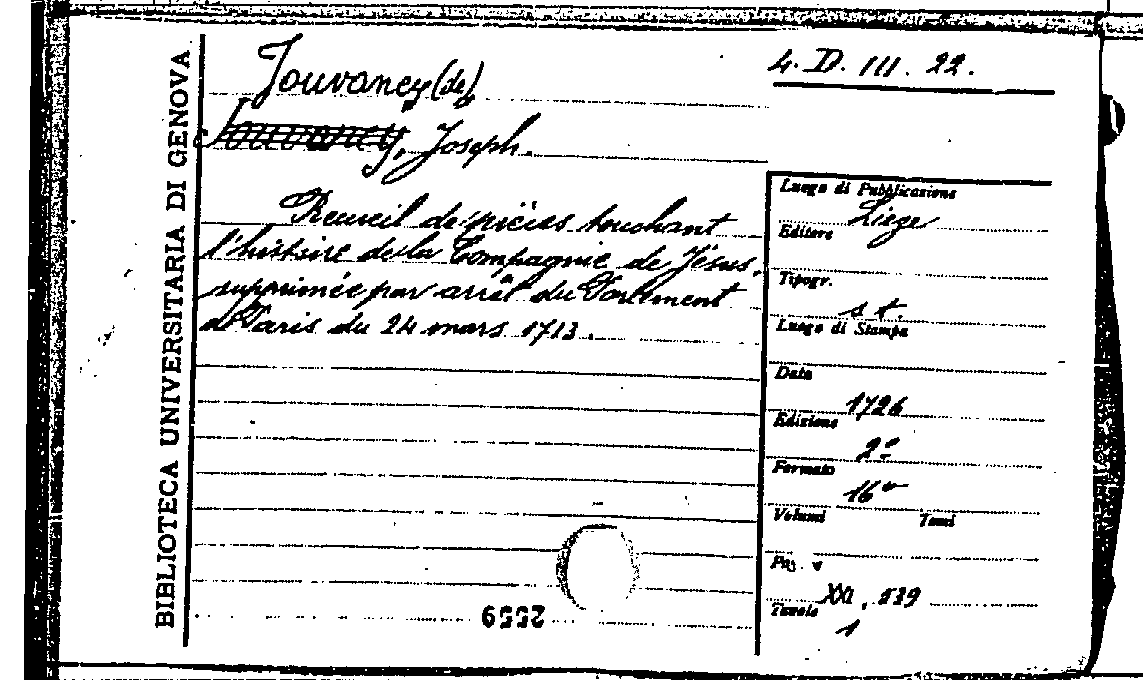 BIBLIOTECA UNIVERSITARIA DI GENOVA
4. D. III. 22.
Jouvancy (de)
Jouvancy, Joseph.
Recueil de pièces touchant
l'histoire de la Compagnie de Jésus,
supprimée par arrêt du Parlement
de Paris du 24 mars 1713.
Luogo di Pubblicazione
Liège
Editore
Tipogr.
s. t.
Luogo di Stampa
Data
1726
Edizione
2ª
Formato
16º
Volumi Tomi
Pag.
XXI, 539
Tavole
1
2559